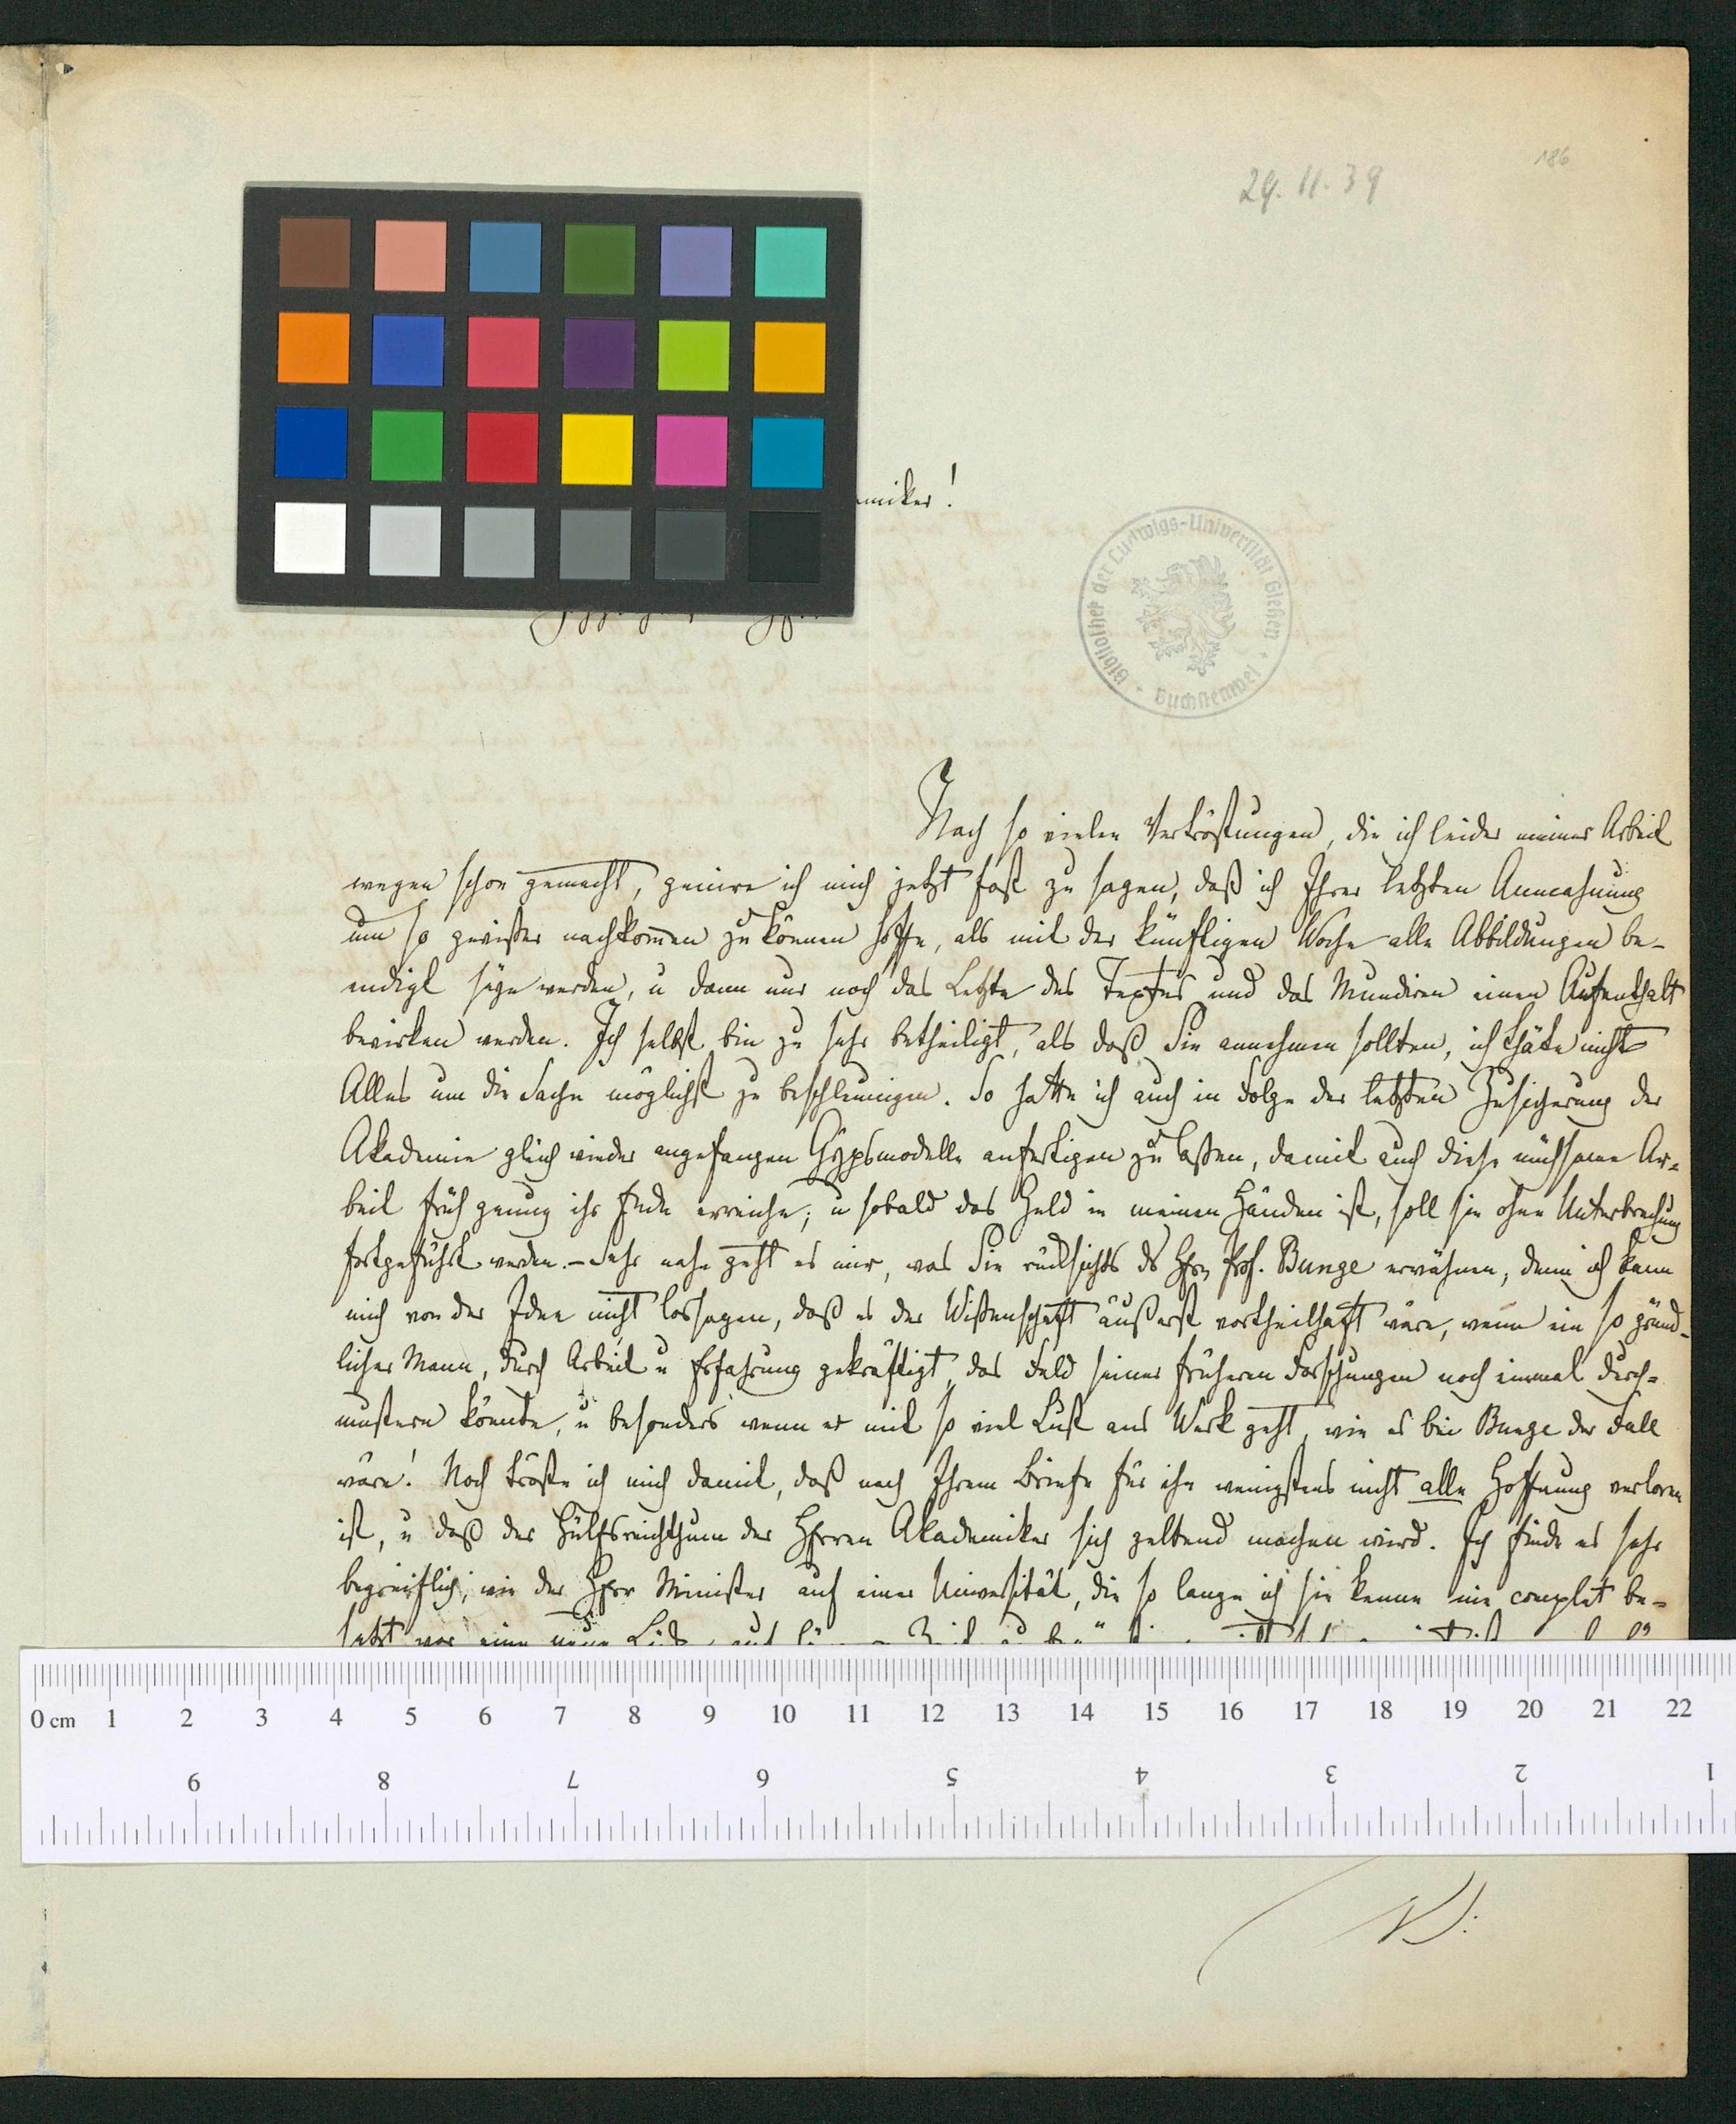 186
29. 11. 39
miker!
Bibliothek der Ludwigs-Universität Gießen · Buchstempel ·
Nach so vielen Vertröstungen, die ich leider meiner Arbeit
wegen schon gemacht, genire ich mich jetzt fast zu sagen, daß ich Ihrer letzten Anmahnung
um so gewißer nachkom̅en zu können hoffe, als mit der künftigen Woche alle Abbildungen be-
endigt seyn werden, u dann nur noch das Letzte des Textes und das Mundiren einen Aufenthalt
bewirken werden. Ich selbst bin zu sehr betheiligt, als daß Sie annehmen sollten, ich thäte nicht
Alles um die Sache möglichst zu beschleunigen. So hatte ich auch in Folge der letzten Zusicherung der
Akademie gleich wieder angefangen Gypsmodelle anfertigen zu laßen, damit auch diese mühsame Ar-
beit früh genug ihr Ende erreiche; u sobald das Geld in meinen Händen ist, soll sie ohne Unterbrechung
fortgeführt werden. – Sehr nahe geht es mir, was Sie rücksichts ds Hrn Prof. Bunge erwähnen, denn ich kann
mich von der Idee nicht lossagen, daß es der Wißenschaft äußerst vortheilhaft wäre, wenn ein so gründ-
licher Mann, durch Arbeit u Erfahrung gekräftigt, das Feld seiner früheren Forschungen noch einmal durch-
mustern könnte, u besonders wenn er mit so viel Lust ans Werk geht, wie es bei Bunge der Fall
wäre! Noch tröste ich mich damit, daß nach Ihrem Briefe für ihn wenigstens nicht alle Hoffnung verloren
ist, u daß der Hülfsreichthum der Herren Akademiker sich geltend machen wird. Ich finde es sehr
begreiflich, wie der Herr Minister auf einer Universität, die so lange ich sie kenne nie complet be-
setzt war eine neue
0 cm 1 2 3 4 5 6 7 8 9 10 11 12 13 14 15 16 17 18 19 20 21 22
9 8 7 6 5 4 3 2 1